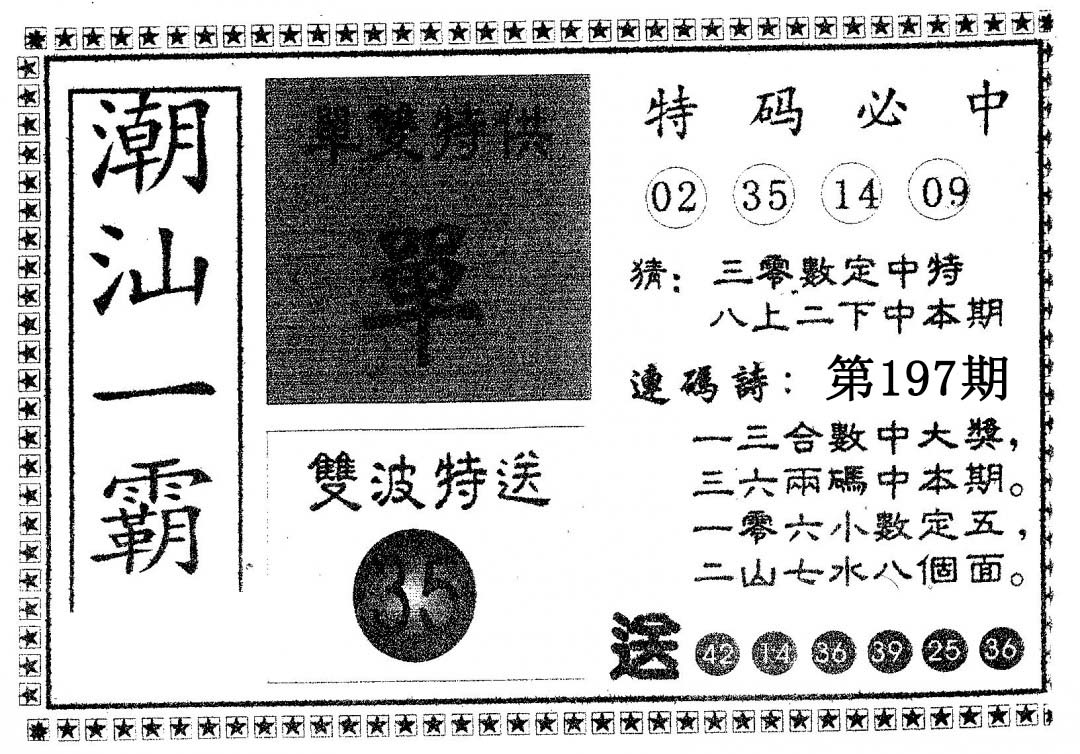 潮汕一霸
單雙特供
單
雙波特送
35
特码必中
02 35 14 09
猜：三零數定中特
八上二下中本期
連碼詩：第197期
一三合數中大獎，
三六兩碼中本期。
一零六小數定五，
二山七水八個面。
送 42 14 36 39 25 36